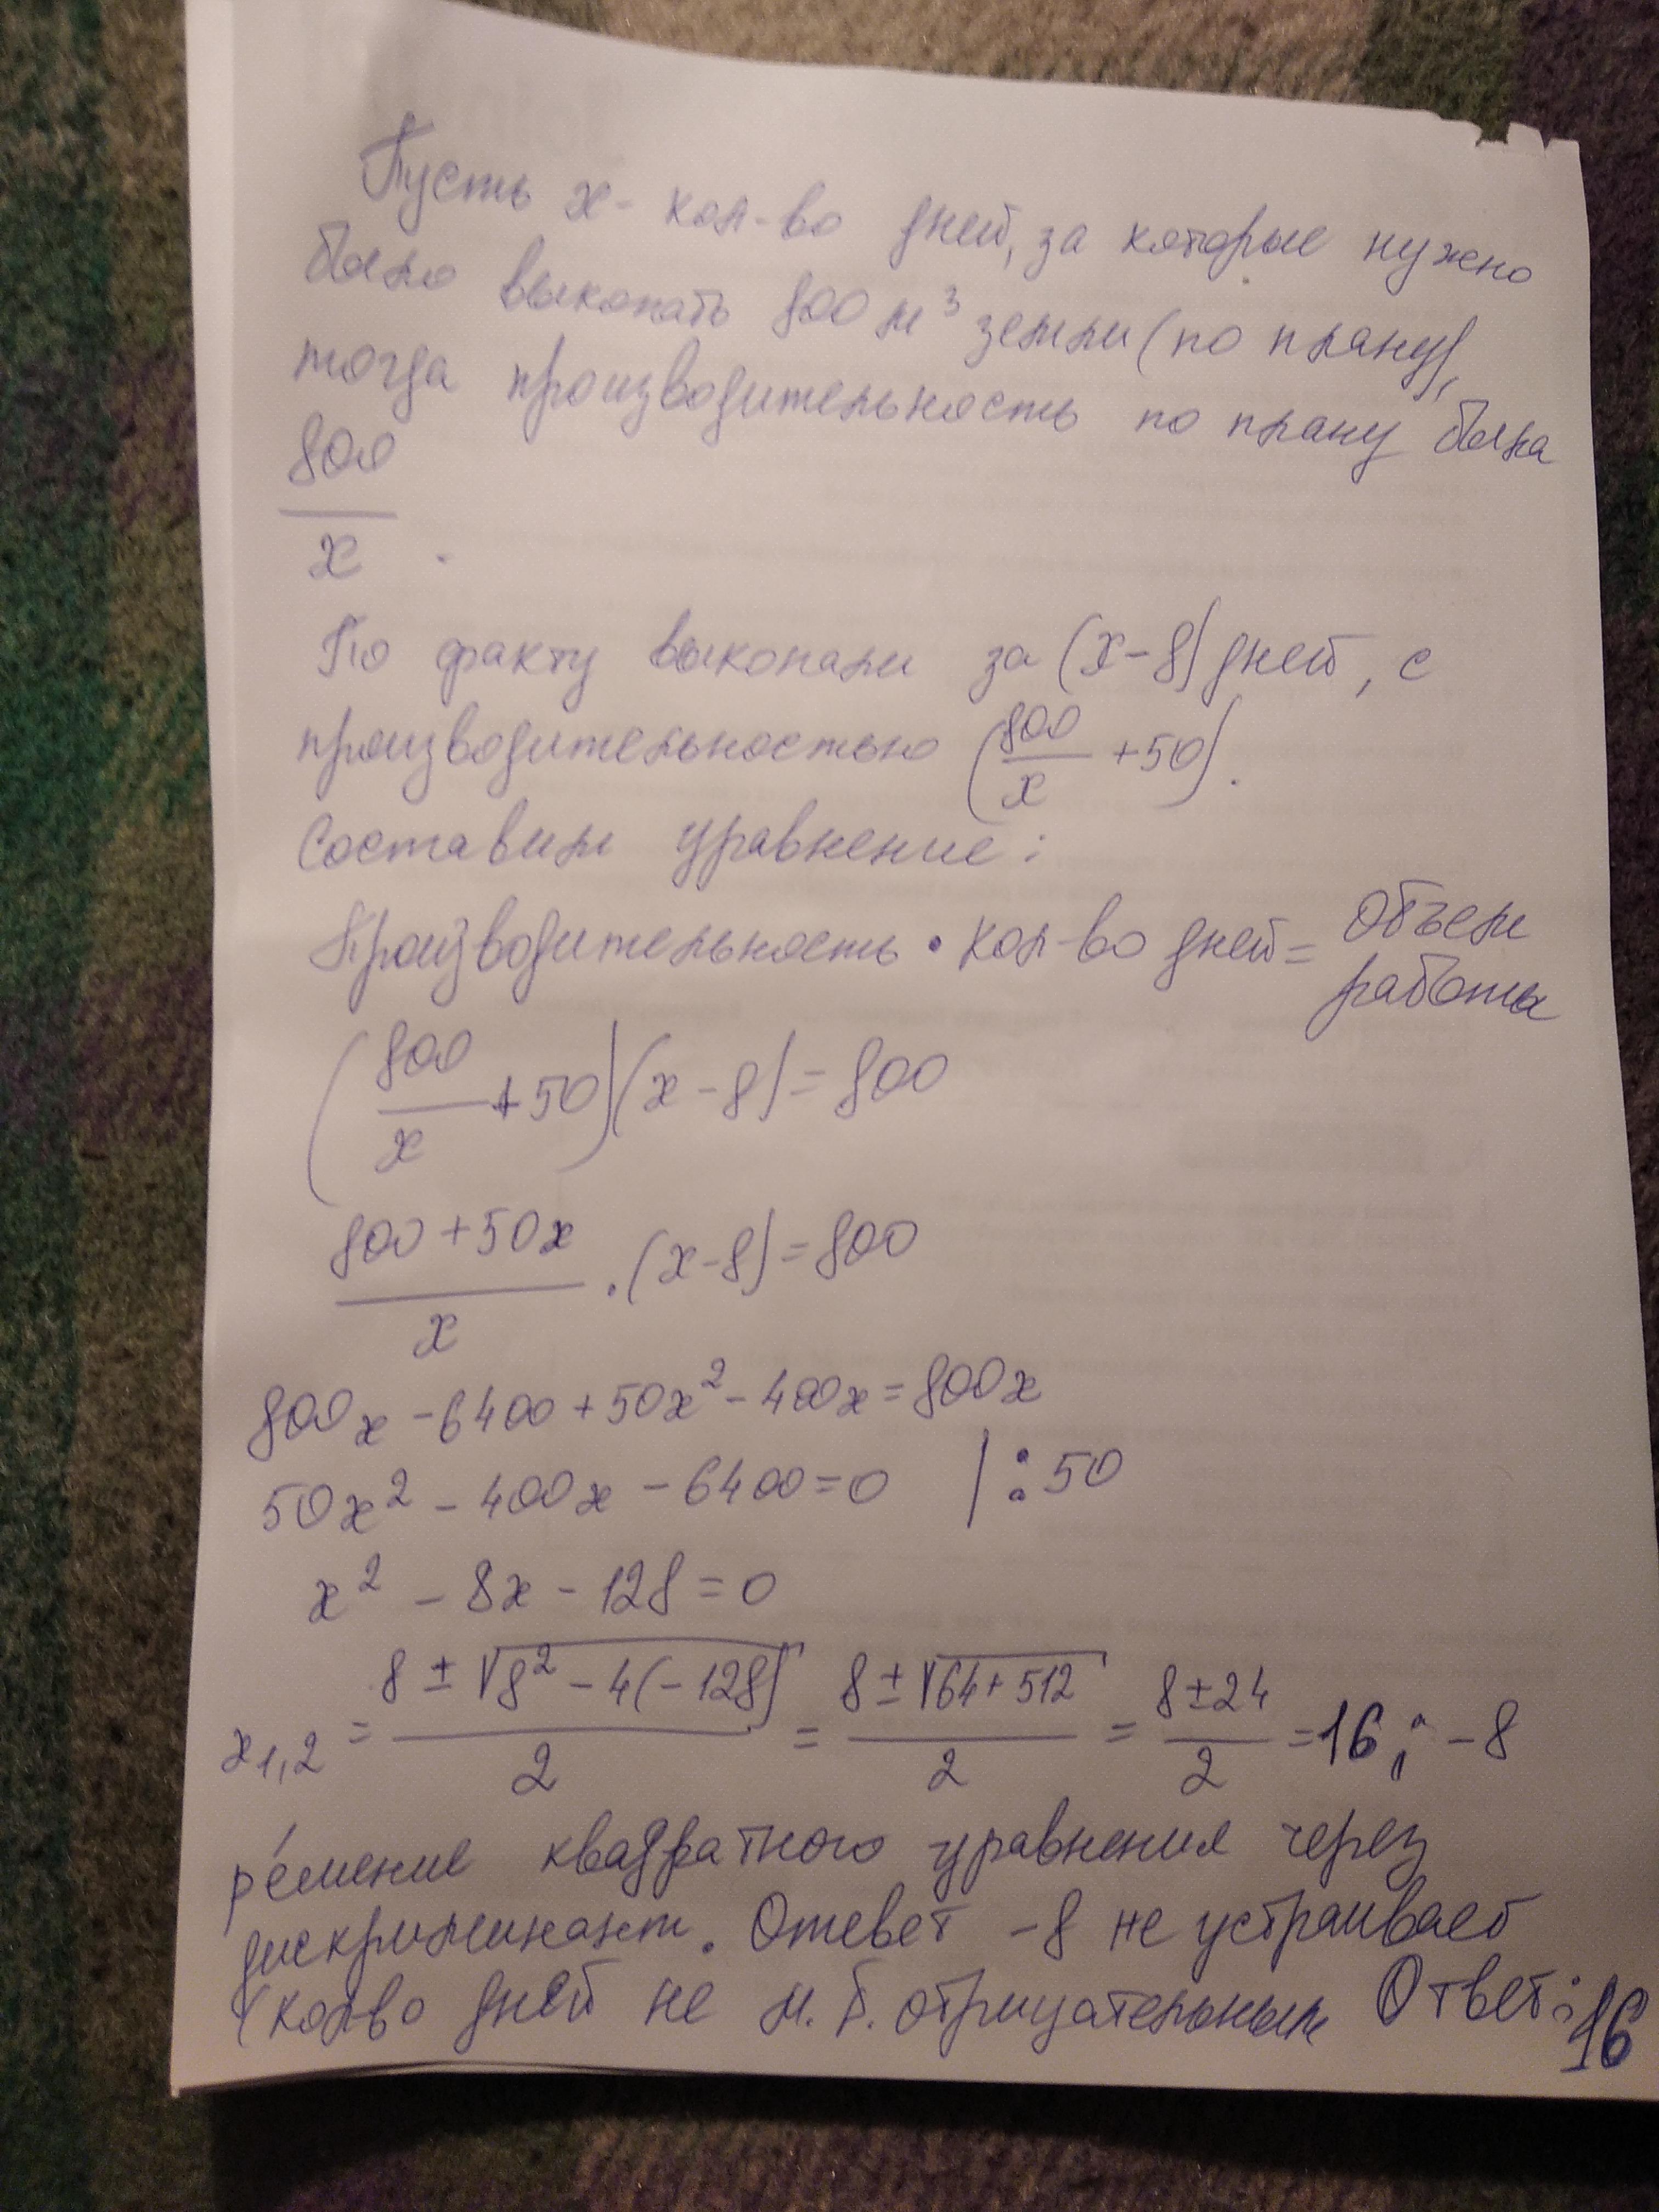 Пусть x - кол-во дней, за которые нужно
было выкопать 800 м³ земли (по плану),
тогда производительность по плану была
800/x .
По факту выкопали за (x-8) дней, с
производительностью (800/x +50).
Составим уравнение:
Производительность • кол-во дней = объем работы
(800/x +50)(x-8)=800
(800+50x)/x .(x-8)=800
800x-6400+50x²-400x=800x
50x²-400x-6400=0 |:50
x²-8x-128=0
x1,2 = (8±√(8²-4(-128)))/2 = (8±√(64+512))/2 = (8±24)/2 =16; -8
решение квадратного уравнения через
дискриминант. Ответ -8 не устраивает
(кол-во дней не м.б. отрицательным Ответ: 16